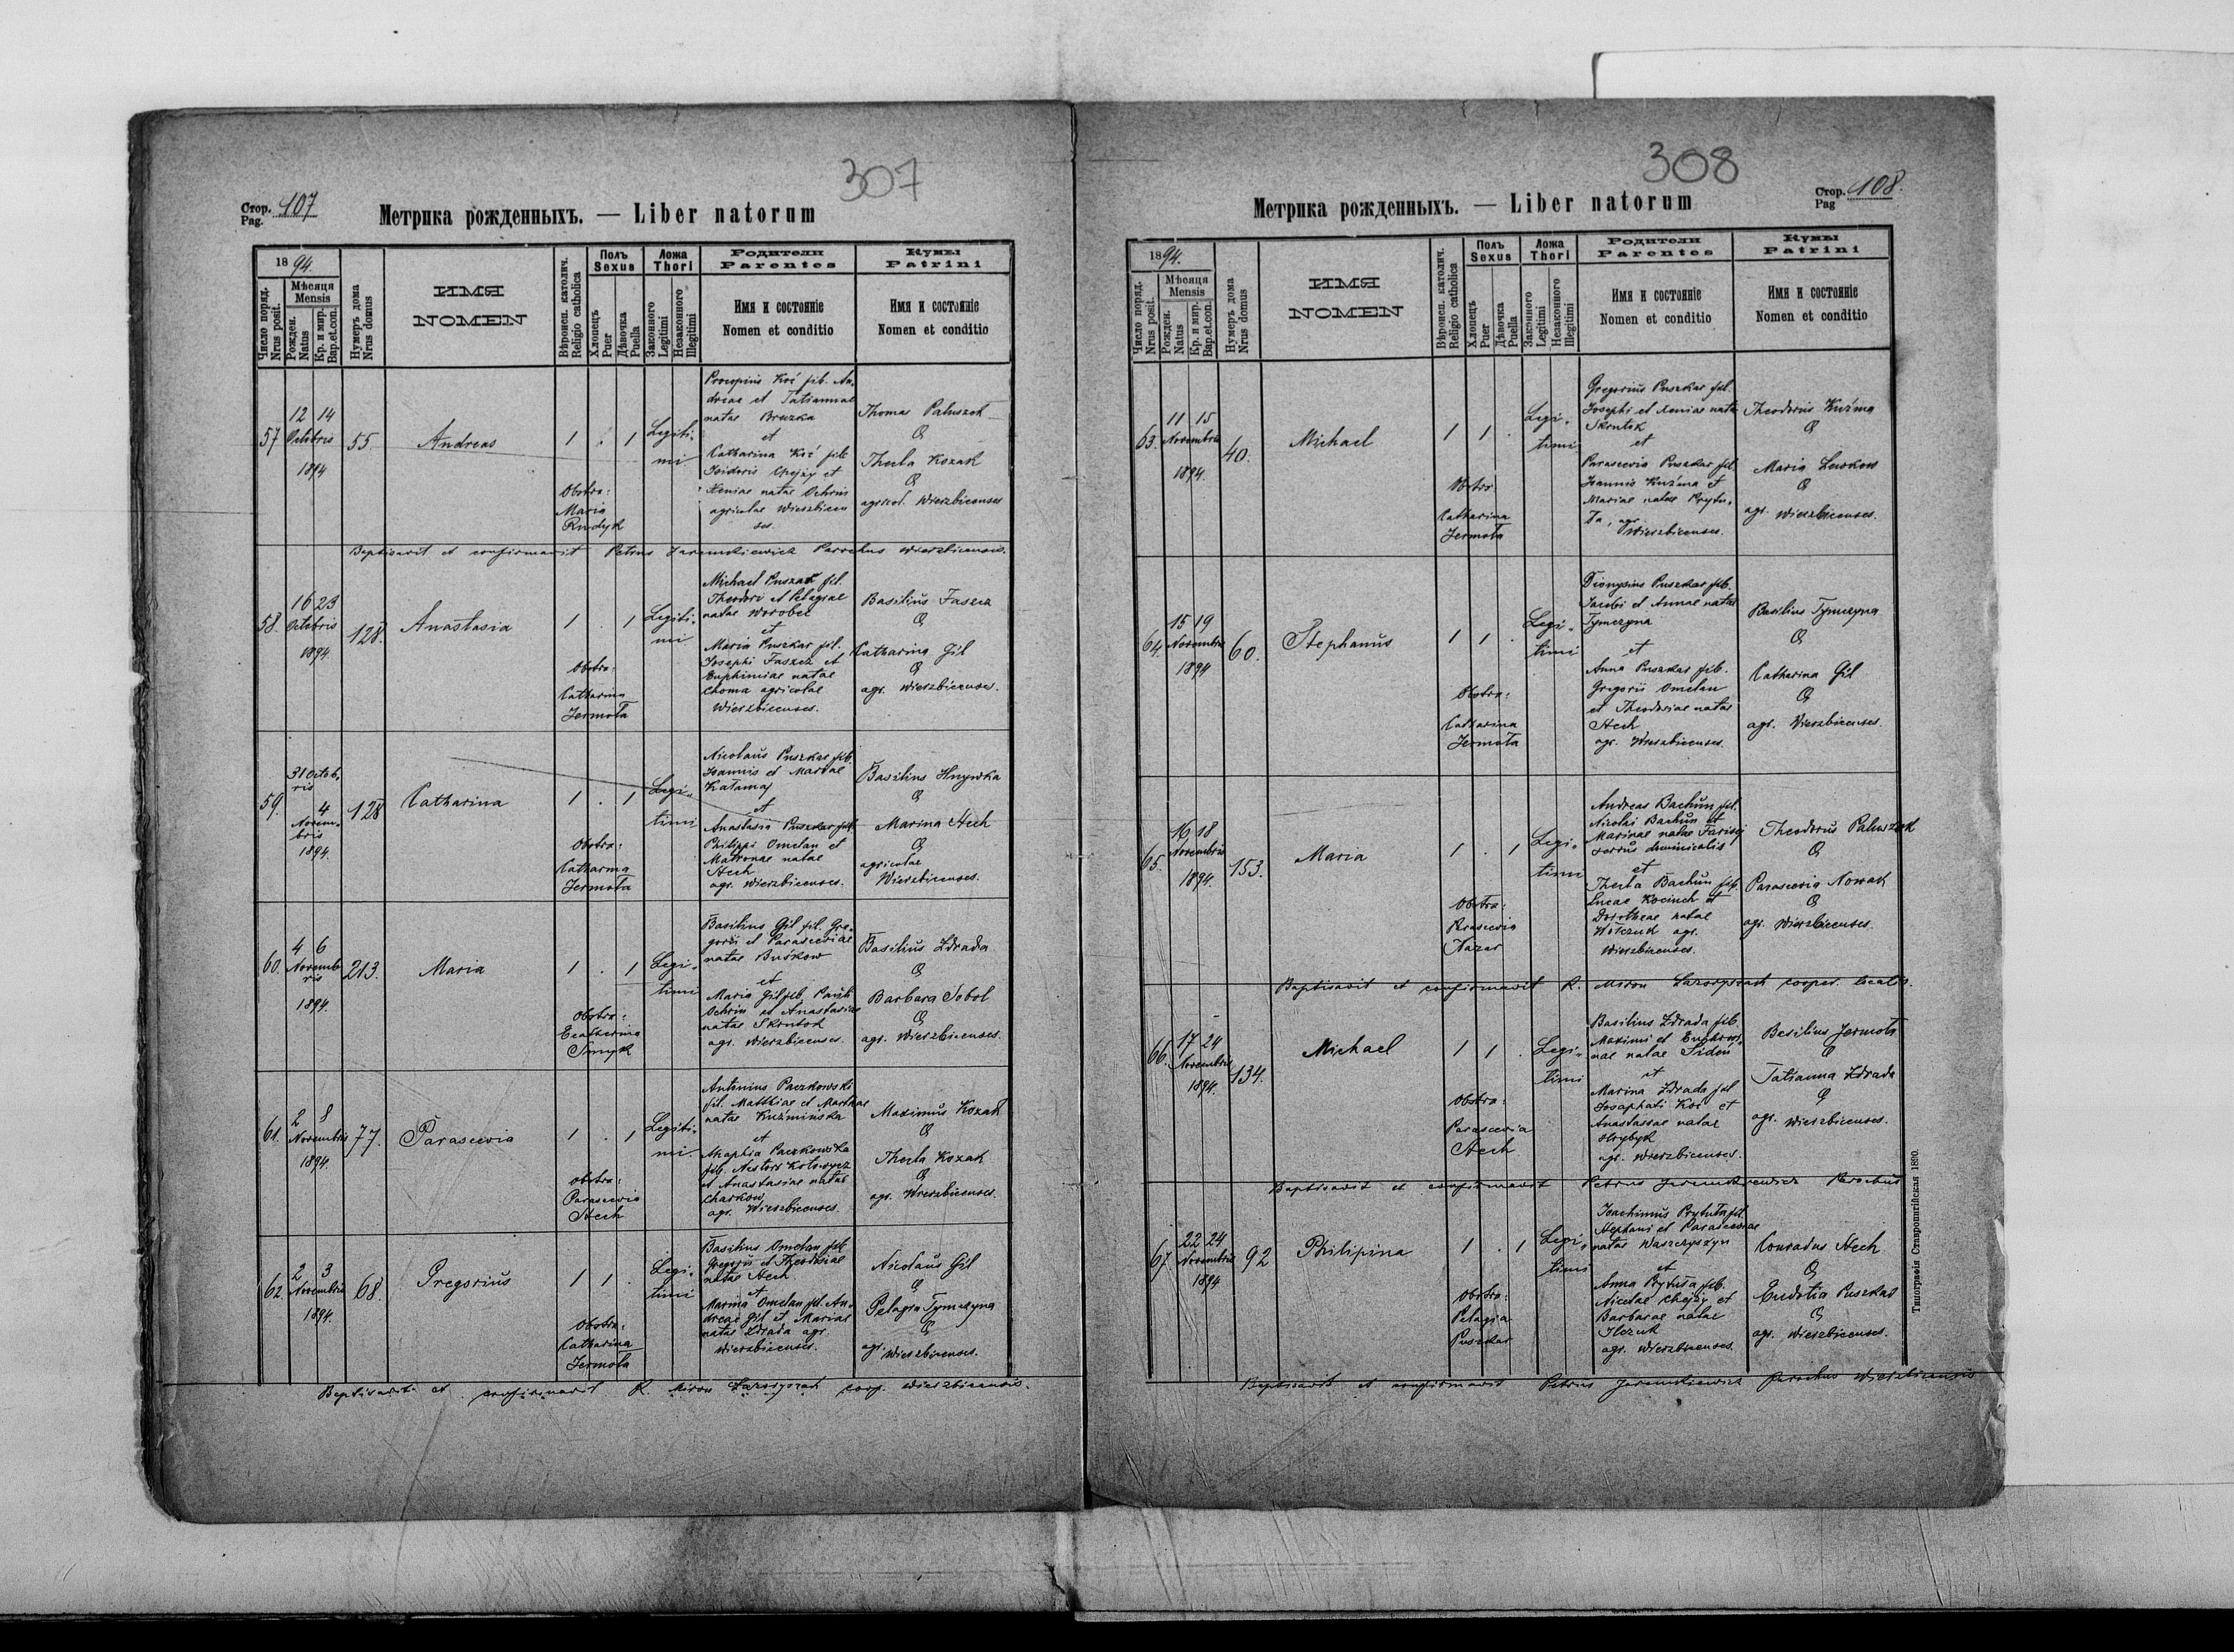 307
Стор. Pag. 107
Метрика рожденныхъ. — Liber natorum
1894.
Число поряд. Nrus posit.
Мѣсяця Mensis
Рожден. Natus
Кр. и мир. Bap.et.con.
Нумеръ дома Nrus domus
ИМЯ
NOMEN
Вѣроисп. католич. Religio catholica
Полъ Sexus
Хлопецъ Puer
Дѣвочка Puella
Ложа Thori
Законного Legitimi
Незаконного Illegitimi
Родители
Parentes
Имя и состояніе
Nomen et conditio
Кумы
Patrini
Имя и состояніе
Nomen et conditio
57
12 14
Octobris
1894
55.
Andreas
1 . 1
Legiti-
mi
Obstra:
Maria
Rudyk
Procopius Koć fil. An-
dreae et Tatiannae
natae Bruzka
et
Catharina Koć fil.
Isidoris Chejzy et
Xeniae natae Ochrin
agricolae Wierzbicen
ses.
Thomas Paluszok
&
Thecla Kozak
&
agricol. Wierzbicenses
Baptisavit et confirmavit Petrus Jaremkiewicz Parochus Wierzbicensis.
58.
16 23
Octobris
1894.
128.
Anastasia
1 . 1
Legiti-
mi
Obstra:
Catharina
Jermoła
Michael Puszkar fil.
Theodori et Pelagiae
natae Worobec
et
Maria Puszkar fil.
Josephi Faszcz et
Euphimiae natae
Choma agricolae
Wierzbicenses.
Basilius Faszcz
&
Catharina Gil
&
agr. Wierzbicenses.
59.
31 Octob-
ris
4
Novem-
bris
1894.
128
Catharina
1 . 1
Legi-
timi
Obstra:
Catharina
Jermoła
Nicolaus Puszkar fil.
Joannis et Marthae
Katamaj
et
Anastasia Puszkar fil.
Philippi Omelan et
Matronae natae
Stech
agr. Wierzbicenses.
Basilius Hnywka
&
Marina Stech
&
agricolae
Wierzbicenses.
60.
4 6
Novemb-
ris
1894.
213.
Maria
1 . 1
Legi-
timi
Obstra:
Ecatherina
Smyk
Basilius Gil fil. Gre-
gorii et Parasceviae
natae Buśkow
et
Maria Gil fil. Pauli
Ochrin et Anastasiae
natae Skrutok
agr. Wierzbicenses.
Basilius Zdrada
&
Barbara Sobol
&
agr. Wierzbicenses.
61.
2 8
Novembris
1894.
77.
Parascevia
1 . 1
Legiti-
mi.
Obstra:
Parascevia
Stech
Antonius Paczkowski
fil. Matthiae et Marthae
natae Kuźmińska
et
Ahaphia Paczkowska
fil. Nestoris
et Anastasiae natae
Charkow
agr. Wierzbicenses.
Maximus Kozak
&
Thecla Kozak
&
agr. Wierzbicenses.
62.
2 3
Novembris
1894.
68.
Gregorius
1 1 .
Legi-
timi
Obstra:
Catharina
Jermoła
Basilius Omelan fil.
Gregorii et Theodosiae
natae Stech
et
Marina Omelan fil. An-
dreae Gil et Mariae
natae Zdrada agr.
Wierzbicenses.
Nicolaus Gil
&
Pelagia Tymczyna
&
agr.
Wierzbicenses.
Baptisavit et confirmavit R. Miron coop. Wierzbicensis.
308
Стор. Pag 108.
Метрика рожденныхъ. — Liber natorum
1894.
Число поряд. Nrus posit.
Мѣсяця Mensis
Рожден. Natus
Кр. и мир. Bap.et.con.
Нумеръ дома Nrus domus
ИМЯ
NOMEN
Вѣроисп. католич. Religio catholica
Полъ Sexus
Хлопецъ Puer
Дѣвочка Puella
Ложа Thori
Законного Legitimi
Незаконного Illegitimi
Родители
Parentes
Имя и состояніе
Nomen et conditio
Кумы
Patrini
Имя и состояніе
Nomen et conditio
63.
11 15
Novembris
1894.
40.
Michael
1 1 .
Legi-
timi
Obstr.
Catharina
Jermoła
Gregorius Puszkar fil.
Josephi et Xeniae natae
Skrutok
et
Parascevia Puszkar fil.
Joannis Kuźma et
Mariae natae Prytu-
ła, agr.
Wierzbicenses.
Theodorus Kuźma
&
Maria
&
agr. Wierzbicenses.
64.
15 19
Novembris
1894
60.
Stephanus
1 1 .
Legi-
timi
Obstra:
Catharina
Jermoła
Dionysius Puszkar fil.
Jacobi et Annae natae
Tymczyna
et
Anna Puszkar fil.
Gregorii Omelan
et Theodosiae natae
Stech
agr. Wierzbicenses.
Basilius Tymczyna
&
Catharina Gil
&
agr. Wierzbicenses.
65.
16 18
Novembris
1894.
153.
Maria
1 . 1
Legi-
timi
Obstra:
Parascevia
Nazar
Andreas Bachún fil.
Nicolai Bachún et
Marinae natae Farisej
servus dominicalis
et
Thecla Bachún fil.
Lucae Kocinch et
Dorotheae natae
Wołczuk agr.
Wierzbicenses.
Theodorus Paluszok
&
Parascevia Nowak
&
agr. Wierzbicenses.
Baptisavit et confirmavit R. Miron cooper. localis.
66.
17 24
Novembris
1894.
134.
Michael
1 1 .
Legi-
timi
Obstra:
Parascevia
Stech
Basilius Zdrada fil.
Maximi et Euphrosi-
nae natae Sidoń
et
Marina Zdrada fil.
Josaphati Koć et
Anastasiae natae
Hrybyk
agr. Wierzbicenses.
Basilius Jermoła
&
Tatianna Zdrada
&
agr. Wierzbicenses.
Baptisavit et confirmavit Petrus Jaremkiewicz Parochus
67.
22 24
Novembris
1894
92
Philipina
1 . 1
Legi-
timi
Obstra:
Pelagia
Puszkar
Joachimus Prytuła fil.
Stephani et Parasceviae
natae Waszczyszyn
et
Anna Prytuła fil.
Nicetae Chejzy et
Barbarae natae
Ilczuk
agr. Wierzbicenses.
Conradus Stech
&
Eudotia Puszkar
&
agr. Wierzbicenses.
Baptisavit et confirmavit Petrus Jaremkiewicz Parochus Wierzbicensis
Типографія Ставропигійская 1890.